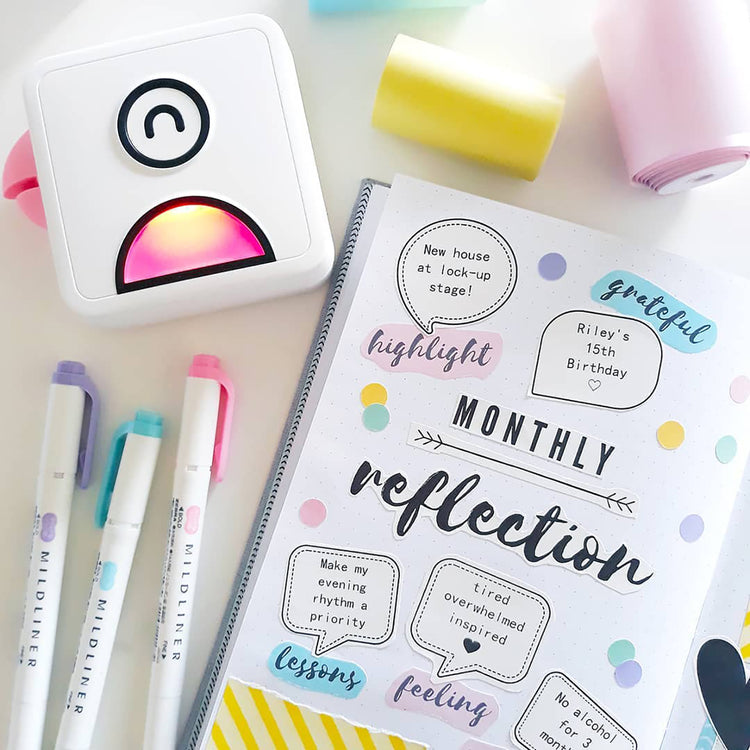 New house
at lock-up
stage!
highlight
grateful
Riley's
15th
Birthday
MONTHLY
reflection
Make my
evening
rhythm a
priority
lessons
tired
overwhelmed
inspired
feeling
No alcohol
for 3
month
MILDLINER
MILDLINER
MILDLINER